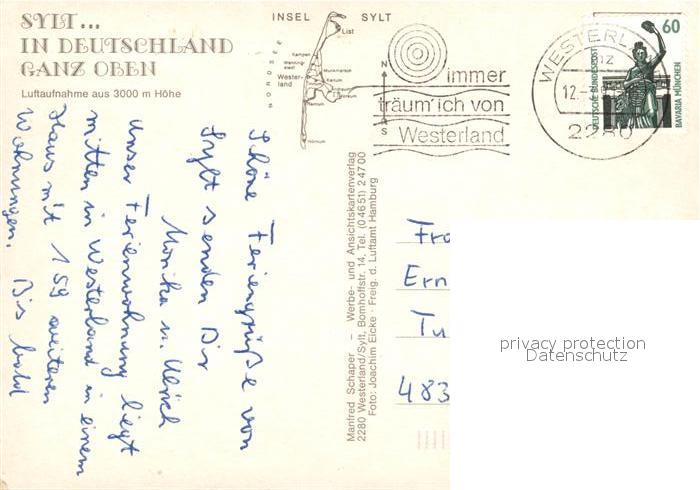 SYLT...
IN DEUTSCHLAND
GANZ OBEN
Luftaufnahme aus 3000 m Höhe
INSEL SYLT
NORDSEE
List
Kampen
Wenning-
stedt
Munkmarsch
Wester-
land
Keitum
Rantum
Hörnum
N
S
immer
träum' ich von
Westerland
WESTERL
nz
12.
2280
60
DEUTSCHE BUNDESPOST
BAVARIA MÜNCHEN
Schöne Feriengrüße von
Sylt senden Dir
Monika u. Ulrich
Unser Ferienwohnung liegt
mitten in Westerland in einem
Haus mit 159 weiteren
Wohnungen. Bis bald
Manfred Schaper – Werbe- und Ansichtskartenverlag
2280 Westerland/Sylt, Bomhoffstr. 14, Tel. (04651) 24700
Foto: Joachim Eicke · Freig. d. Luftamt Hamburg
Fra
Ern
Tu
483
privacy protection
Datenschutz